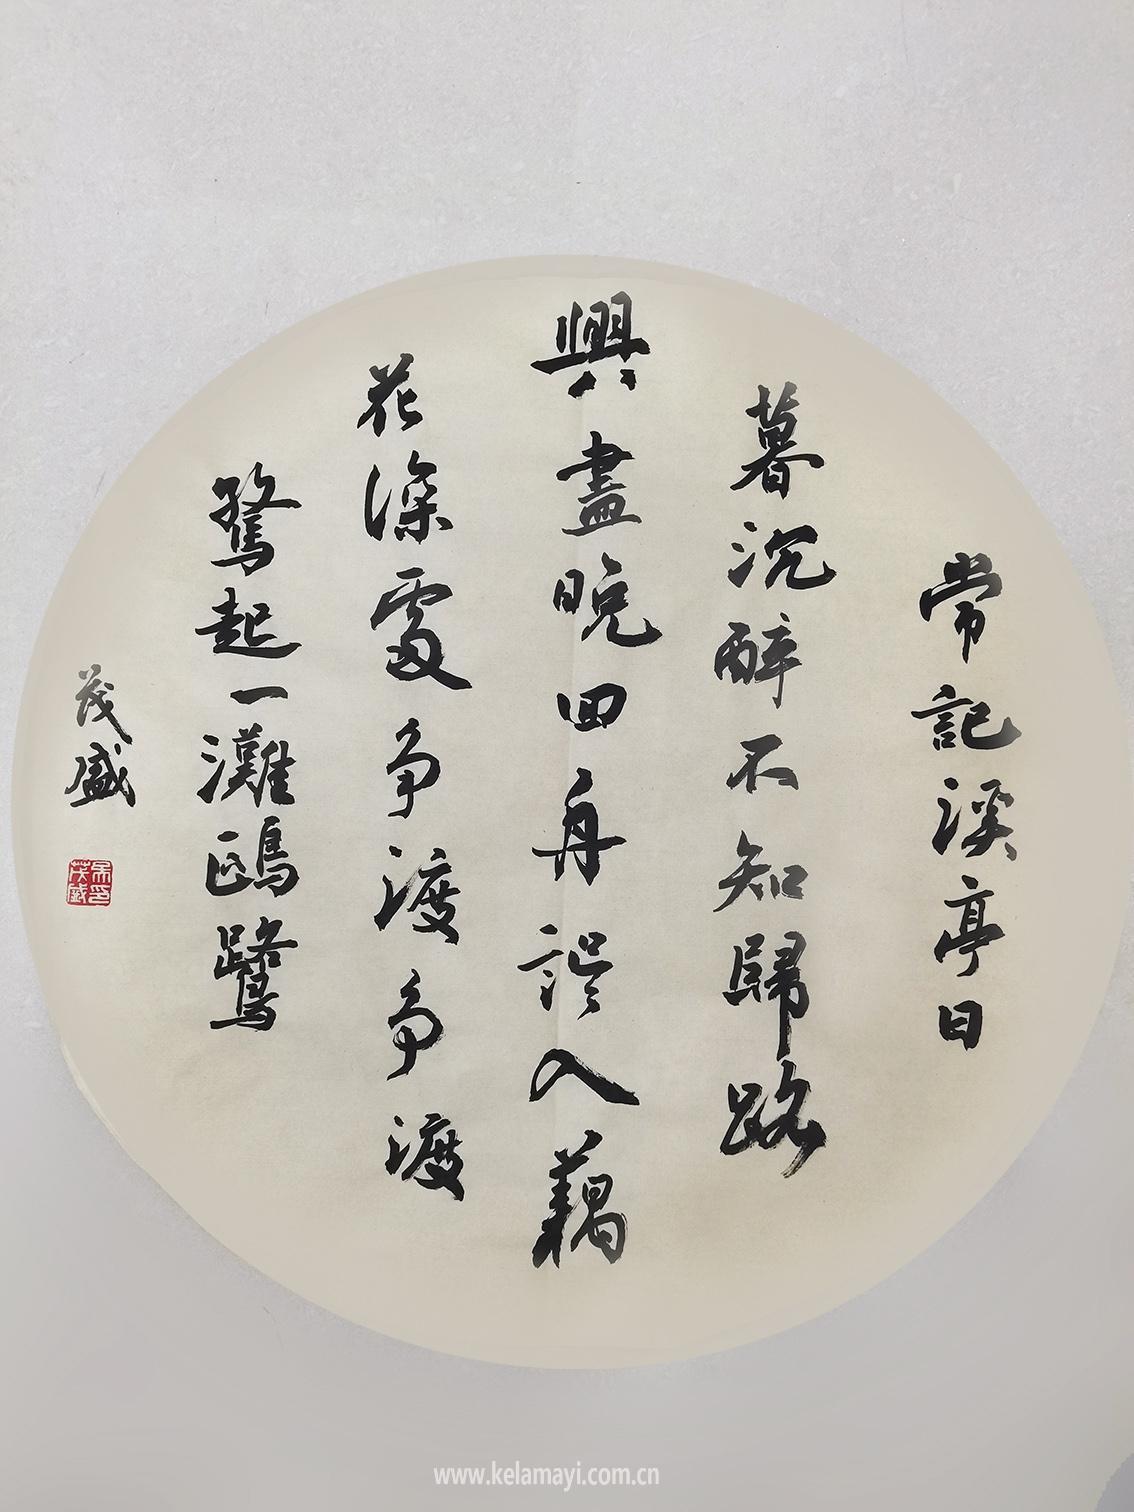 常記溪亭日
暮沉醉不知歸路
興盡晚回舟誤入藕
花深處爭渡爭渡
驚起一灘鷗鷺
茂盛
www.kelamayi.com.cn